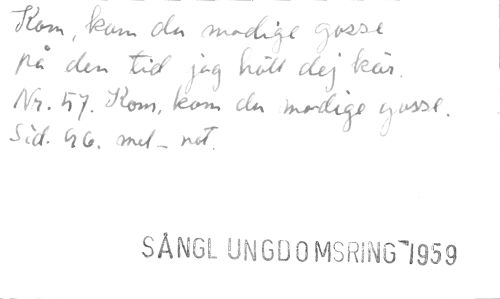 Kom, kom du modige gosse
på den tid jag höll dej kär.
Nr. 57. Kom, kom du modige gosse.
Sid. 46. mel - not.
SÅNGL UNGDOMSRING 1959